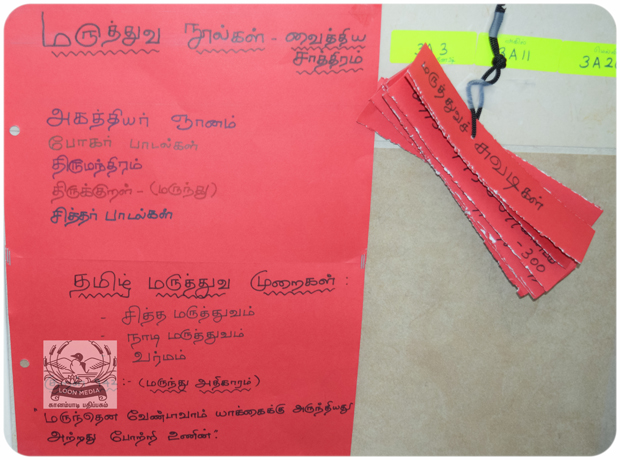 மருத்துவ நூல்கள் - வைத்திய
சாத்திரம்
அகத்தியர் ஞானம்
போகர் பாடல்கள்
திருமந்திரம்
திருக்குறள் - (மருந்து)
சித்தர் பாடல்கள்
தமிழ் மருத்துவ முறைகள் :
- சித்த மருத்துவம்
- நாடி மருத்துவம்
வர்மம்
:- (மருந்து அதிகாரம்)
"மருந்தென வேண்டாவாம் யாக்கைக்கு அருந்தியது
அற்றது போற்றி உணின்."
LOON MEDIA
கானம்பாடி பதிப்பகம்
3A 3
3A11
3A2
மருத்துவச் சுவடிகள்
-300